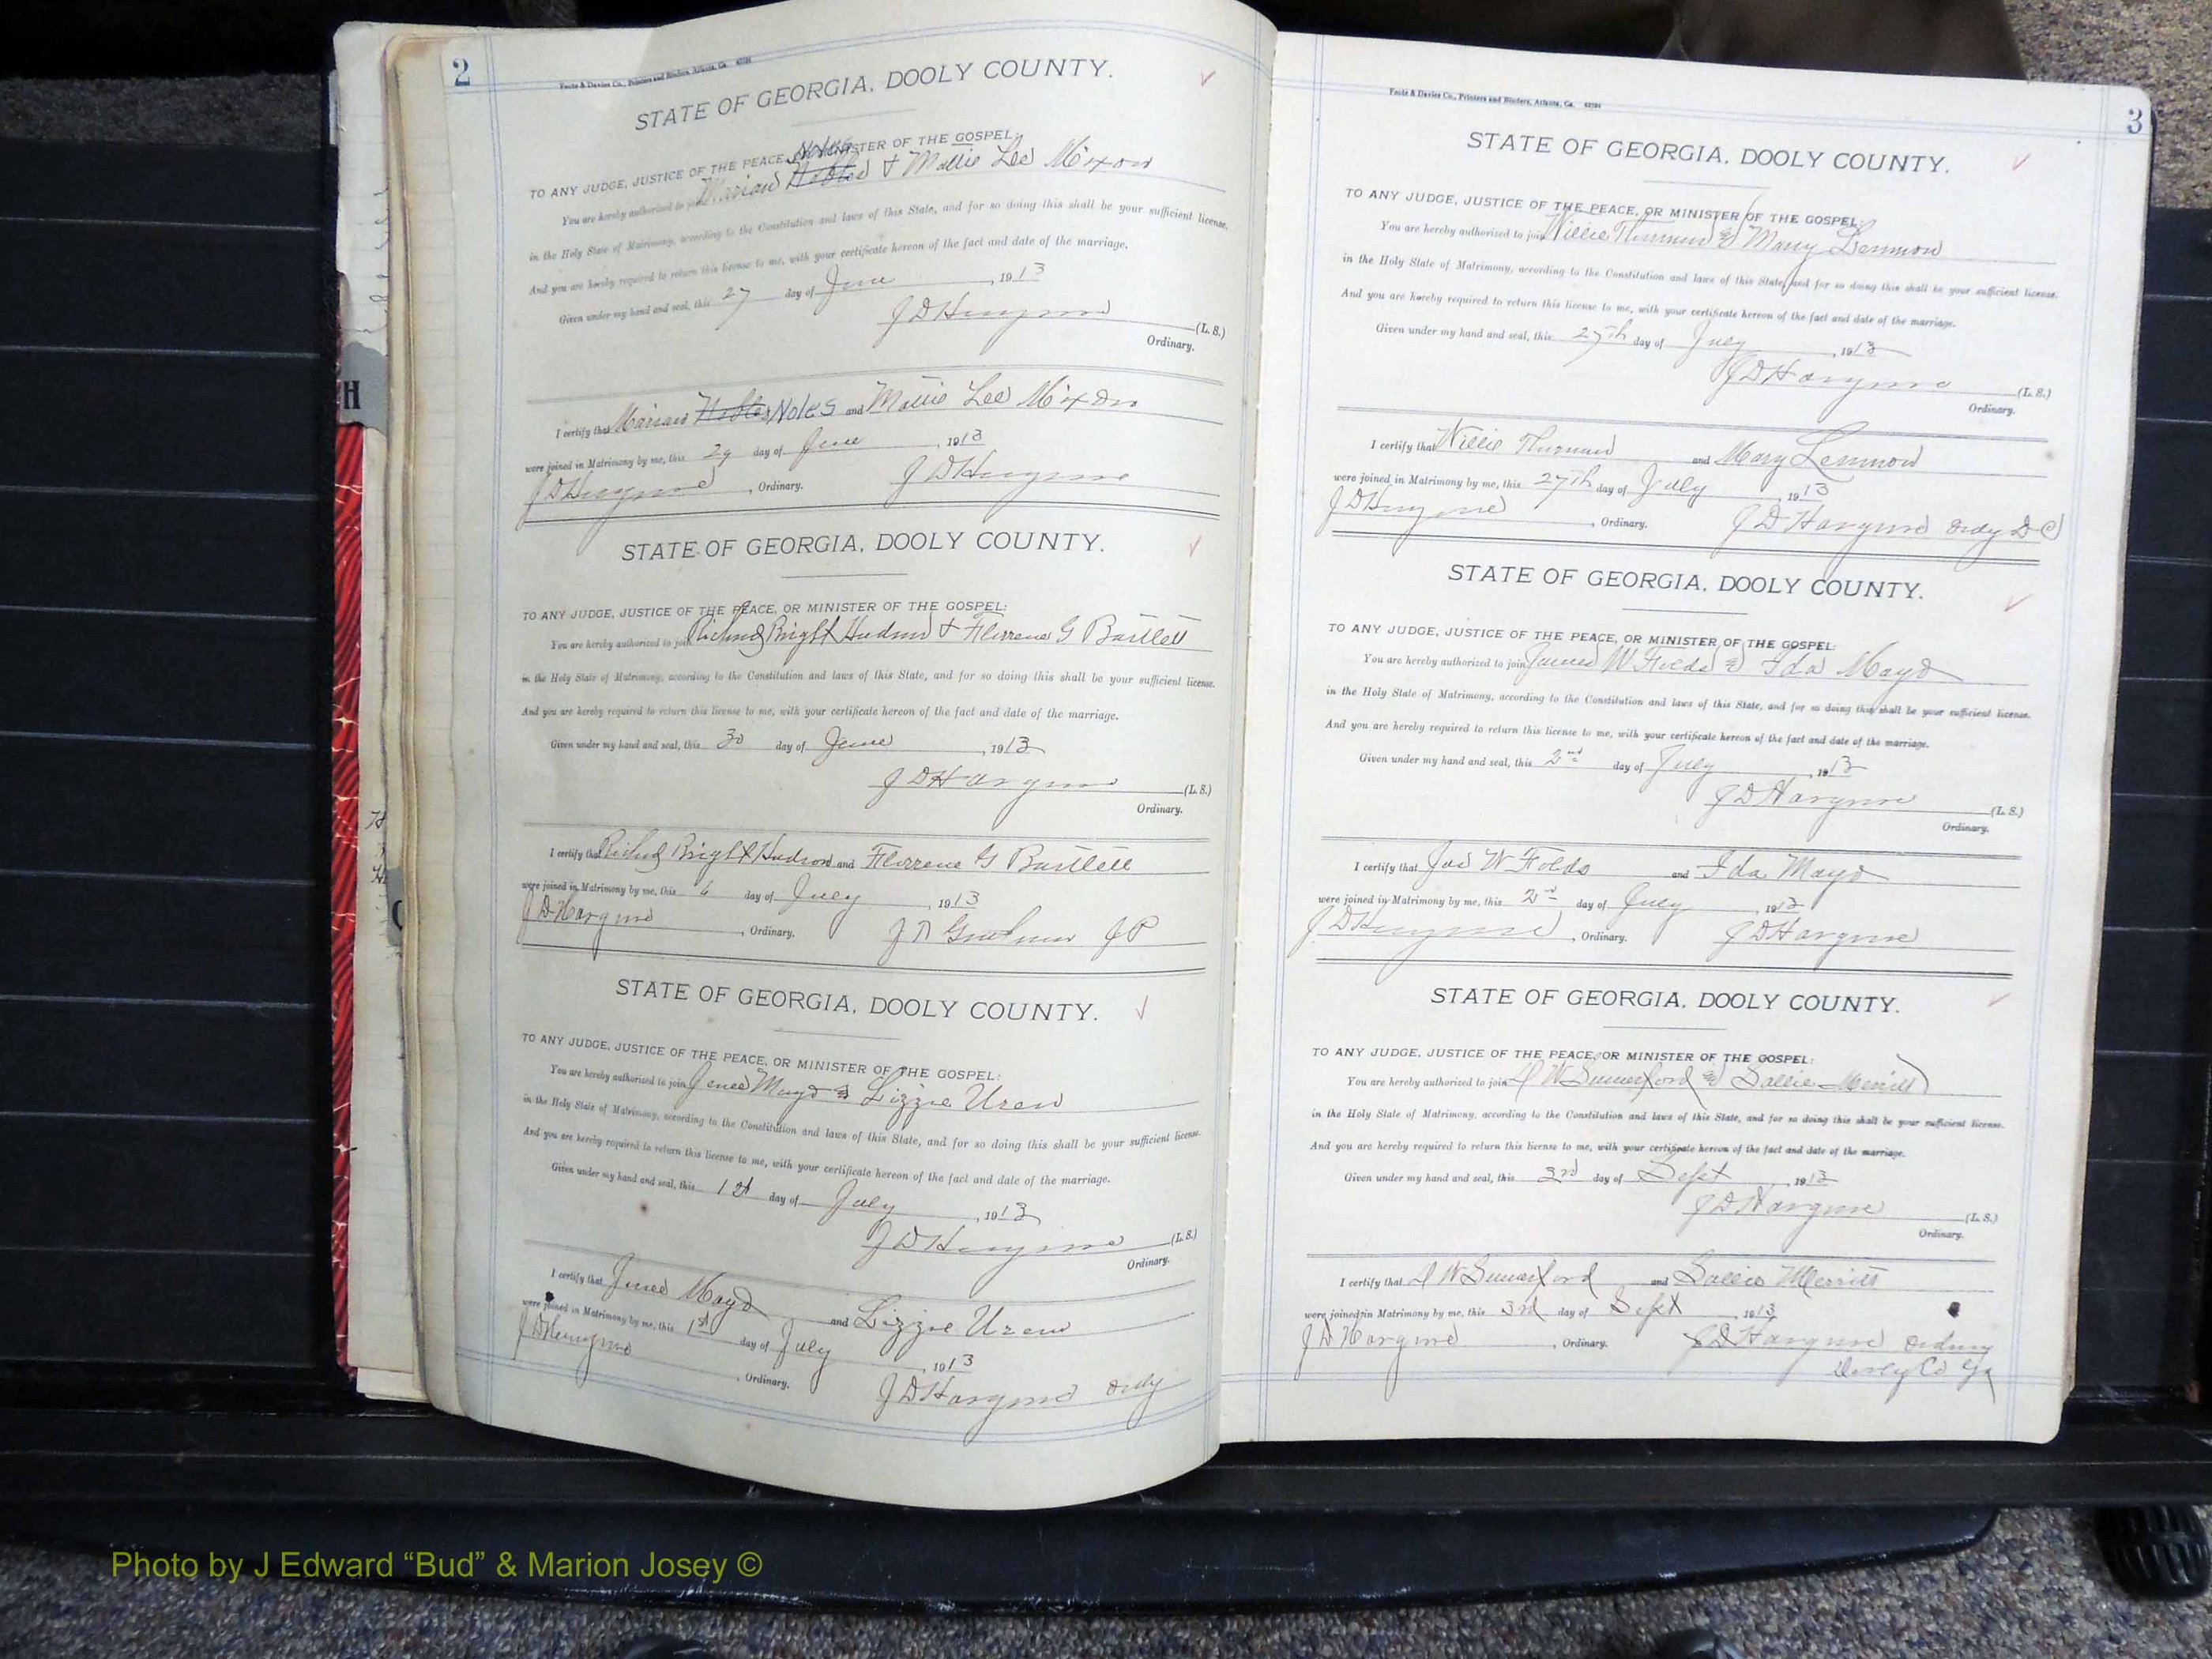 2
Foote & Davies Co., Printers and Binders, Atlanta, Ga.
STATE OF GEORGIA, DOOLY COUNTY.
TO ANY JUDGE, JUSTICE OF THE PEACE, OR MINISTER OF THE GOSPEL:
Noles
You are hereby authorized to join & Mollie Lee Mixon
in the Holy State of Matrimony, according to the Constitution and laws of this State, and for so doing this shall be your sufficient license.
And you are hereby required to return this license to me, with your certificate hereon of the fact and date of the marriage.
Given under my hand and seal, this 27 day of June, 1913
J D Hargrove (L. S.)
Ordinary.
I certify that Noles and Mollie Lee Mixon
were joined in Matrimony by me, this 29 day of June, 1913
J D Hargrove, Ordinary. J D Hargrove
STATE OF GEORGIA, DOOLY COUNTY.
TO ANY JUDGE, JUSTICE OF THE PEACE, OR MINISTER OF THE GOSPEL:
You are hereby authorized to join Bright Hudson & G Bartlett
in the Holy State of Matrimony, according to the Constitution and laws of this State, and for so doing this shall be your sufficient license.
And you are hereby required to return this license to me, with your certificate hereon of the fact and date of the marriage.
Given under my hand and seal, this 30 day of June, 1913
J D Hargrove (L. S.)
Ordinary.
I certify that Bright Hudson and G Bartlett
were joined in Matrimony by me, this 6 day of July, 1913
J D Hargrove, Ordinary. J P
STATE OF GEORGIA, DOOLY COUNTY.
TO ANY JUDGE, JUSTICE OF THE PEACE, OR MINISTER OF THE GOSPEL:
You are hereby authorized to join Mayo & Lizzie
in the Holy State of Matrimony, according to the Constitution and laws of this State, and for so doing this shall be your sufficient license.
And you are hereby required to return this license to me, with your certificate hereon of the fact and date of the marriage.
Given under my hand and seal, this 1st day of July, 1913
J D Hargrove (L. S.)
Ordinary.
I certify that Mayo and Lizzie
were joined in Matrimony by me, this 1st day of July, 1913
J D Hargrove, Ordinary. J D Hargrove Ordy
3
Foote & Davies Co., Printers and Binders, Atlanta, Ga.
STATE OF GEORGIA, DOOLY COUNTY.
TO ANY JUDGE, JUSTICE OF THE PEACE, OR MINISTER OF THE GOSPEL:
You are hereby authorized to join Willie Thurman & Mary Lemmon
in the Holy State of Matrimony, according to the Constitution and laws of this State, and for so doing this shall be your sufficient license.
And you are hereby required to return this license to me, with your certificate hereon of the fact and date of the marriage.
Given under my hand and seal, this 27th day of July, 1913
J D Hargrove (L. S.)
Ordinary.
I certify that Willie Thurman and Mary Lemmon
were joined in Matrimony by me, this 27th day of July, 1913
J D Hargrove, Ordinary. J D Hargrove Ordy D C
STATE OF GEORGIA, DOOLY COUNTY.
TO ANY JUDGE, JUSTICE OF THE PEACE, OR MINISTER OF THE GOSPEL:
You are hereby authorized to join James W Folds & Ida Mayo
in the Holy State of Matrimony, according to the Constitution and laws of this State, and for so doing this shall be your sufficient license.
And you are hereby required to return this license to me, with your certificate hereon of the fact and date of the marriage.
Given under my hand and seal, this 2nd day of July, 1913
J D Hargrove (L. S.)
Ordinary.
I certify that Jas W Folds and Ida Mayo
were joined in Matrimony by me, this 2nd day of July, 1913
J D Hargrove, Ordinary. J D Hargrove
STATE OF GEORGIA, DOOLY COUNTY.
TO ANY JUDGE, JUSTICE OF THE PEACE, OR MINISTER OF THE GOSPEL:
You are hereby authorized to join W Sumerford & Sallie Merritt
in the Holy State of Matrimony, according to the Constitution and laws of this State, and for so doing this shall be your sufficient license.
And you are hereby required to return this license to me, with your certificate hereon of the fact and date of the marriage.
Given under my hand and seal, this 3rd day of Sept, 1913
J D Hargrove (L. S.)
Ordinary.
I certify that W Sumerford and Sallie Merritt
were joined in Matrimony by me, this 3rd day of Sept, 1913
J D Hargrove, Ordinary. J D Hargrove
Dooly Co Ga
H
Photo by J Edward “Bud” & Marion Josey ©